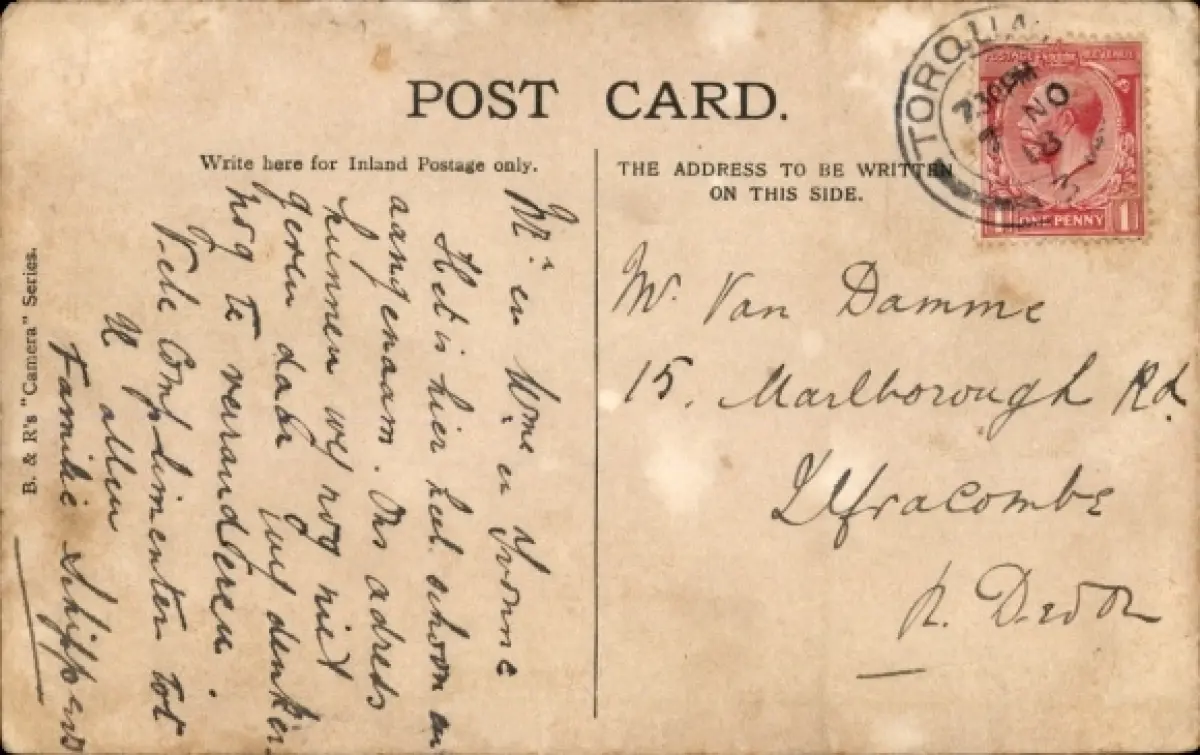 POST CARD.
Write here for Inland Postage only.
THE ADDRESS TO BE WRITTEN
ON THIS SIDE.
B. & R's "Camera" Series.
TORQUAY
7.30 PM
NO
ONE PENNY
1 1
Mr en Mme en Yvonne
Het is hier heel schoon en
aangenaam. Ons adres
kunnen wy nog niet
geven daar wy denken
nog te veranderen.
Vele Complimenten tot
U allen
Familie Schippers
Mr. Van Damme
15. Marlborough Rd.
Ilfracombe
N. Devon